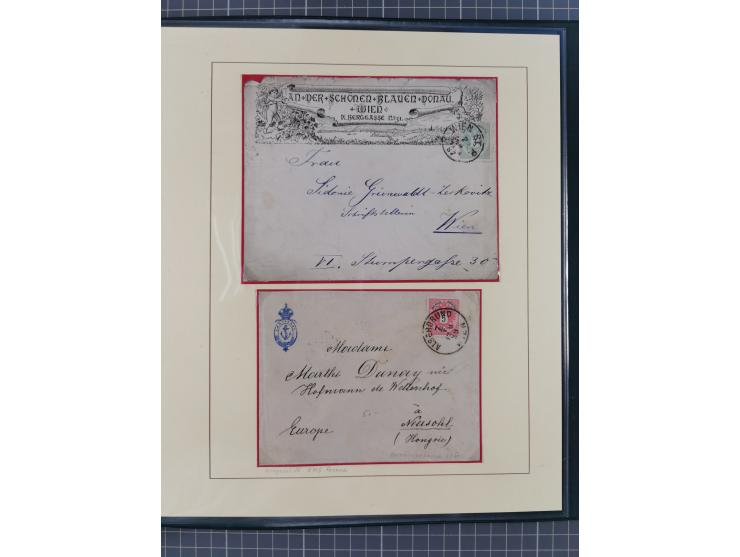 AN · DER · SCHÖNEN · BLAUEN · DONAU.
WIEN
IX. BERGGASSE No 31.
WIEN
Frau
Sidonie Grünwald-Zerkovitz
Schriftstellerin
Wien
VI. Stumpergasse 30
5
ALSERGRUND
Madame
Marthe Dunay née
Hofmann de Wellenhof
à
Neusohl
(Hongrie)
Europe